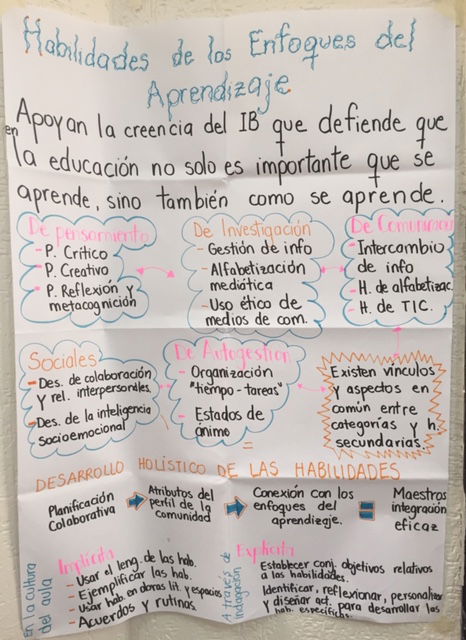 Habilidades de los Enfoques del
Aprendizaje
Apoyan la creencia del IB que defiende que
en
la educación no solo es importante que se
aprende, sino también como se aprende.
De pensamiento
- P. Crítico
- P. Creativo
- P. Reflexión y
metacognición
De Investigación
- Gestión de info
- Alfabetización
mediática
- Uso ético de
medios de com.
De Comunicac
- Intercambio
de info
- H. de alfabetizac.
- H. de TIC.
Sociales
- Des. de colaboración
y rel. interpersonales.
- Des. de la inteligencia
socioemocional
De Autogestion
- Organización
"tiempo - tareas"
- Estados de
ánimo
Existen vínculos
y aspectos en
común entre
categorías y h.
secundarias.
=
DESARROLLO HOLÍSTICO DE LAS HABILIDADES
Planificación
Colaborativa
Atributos del
perfil de la
comunidad
Conexión con los
enfoques del
aprendizaje.
=
Maestros
integración
eficaz
En la cultura
del aula
Implícita
- Usar el leng. de las hab.
- Ejemplificar las hab.
- Usar hab. en obras lit. y espacios
- Acuerdos y rutinas.
A través de
indagación
Explícita
Establecer conj. objetivos relativos
a las habilidades.
Identificar, reflexionar, personalizar
y diseñar act. para desarrollar las
hab. específicas.